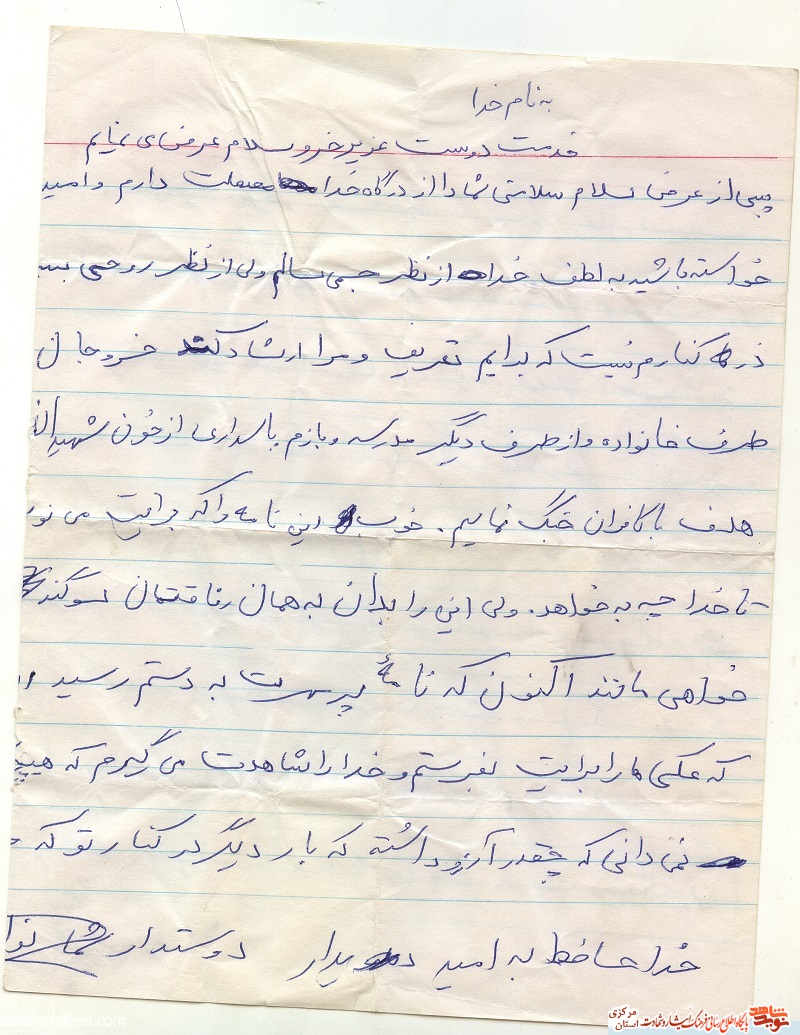 به نام خدا
خدمت دوست عزیز خسرو سلام عرض می نمایم
پس از عرض سلام سلامتی شما را از درگاه خدا مسئلت دارم و امید
خواسته باشید به لطف خدا از نظر جسمی سالم ولی از نظر روحی بسـ
ذره کنارم نیست که برایم تعریف و مرا ارشاد کند خسرو جان
طرف خانواده و از طرف دیگر مدرسه و بازم پاسداری از خون شهیدان
هدف با کافران جنگ نمایم. خوب این نامه را که برایت می نو
تا خدا چه به خواهد. ولی این را بدان به همان رفاقتمان سوگند
خواهی ماند اکنون که نامهٔ پر مهرت به دستم رسید
که عکس ها را برایت بفرستم و خدا را شاهدت می گیرم که هیچ
نمی دانی که چقدر آرزو داشته که بار دیگر در کنار تو که
خدا حافظ به امید دیدار دوستدار شما
navideshahed.com
نوید شاهد
پایگاه اطلاع رسانی فرهنگ ایثار و شهادت
استان مرکزی